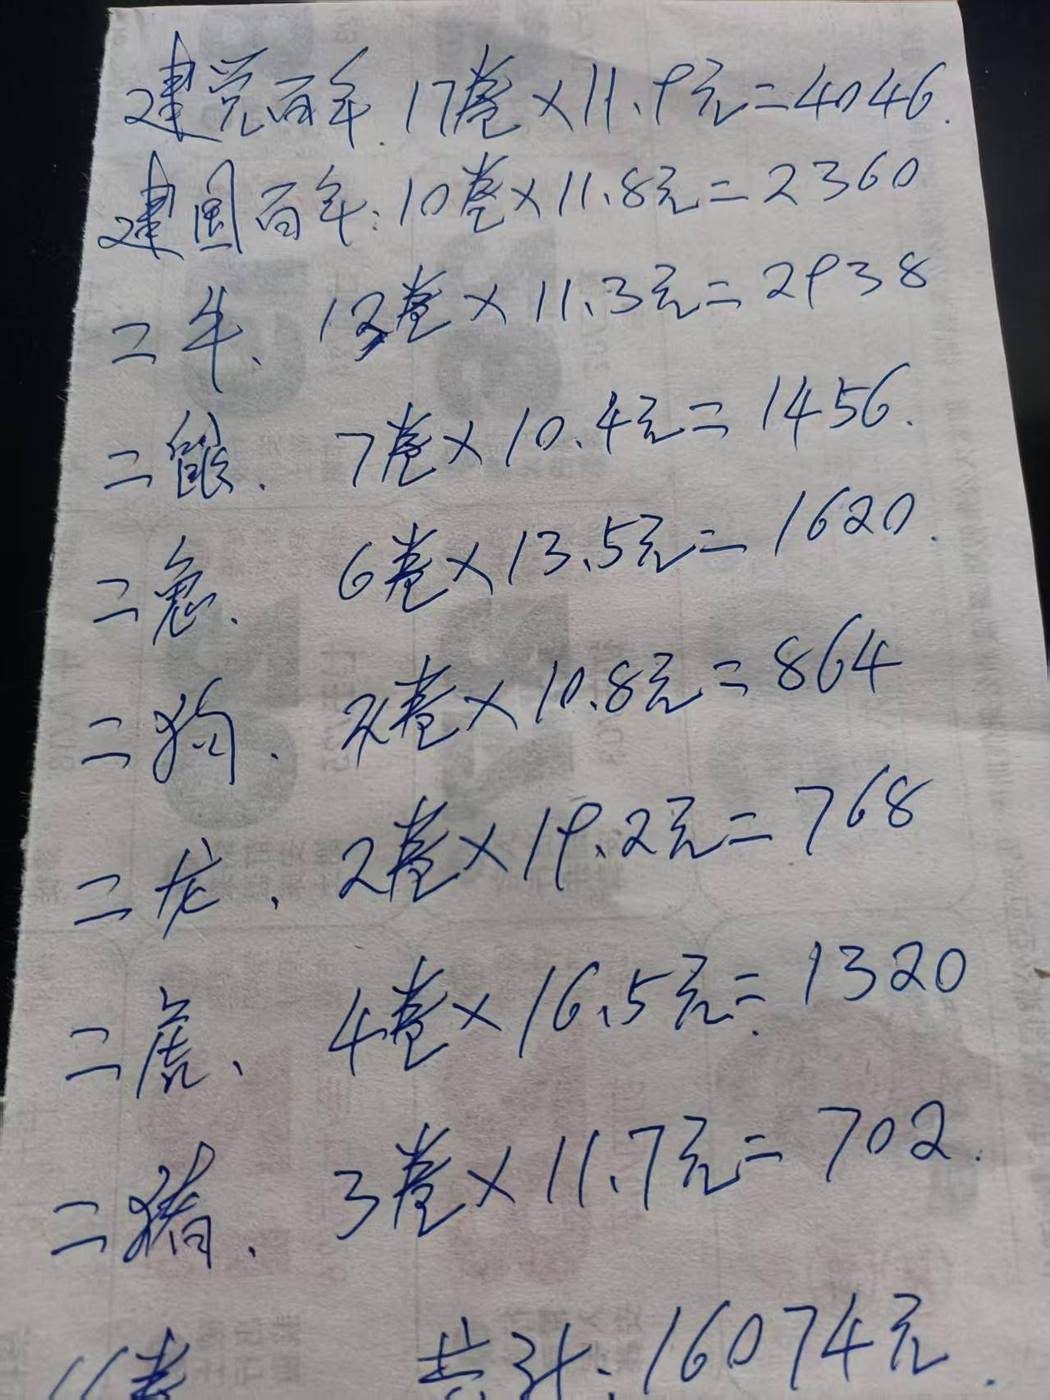 建党百年. 17卷×11.9元=4046.
建国百年:10卷×11.8元=2360
二牛、13卷×11.3元=2938
二银. 7卷×10.4元=1456.
二兔. 6卷×13.5元=1620.
二狗. 4卷×10.8元=864
二龙. 2卷×19.2元=768
二虎、4卷×16.5元=1320
二猪. 3卷×11.7元=702.
共计:16074元.